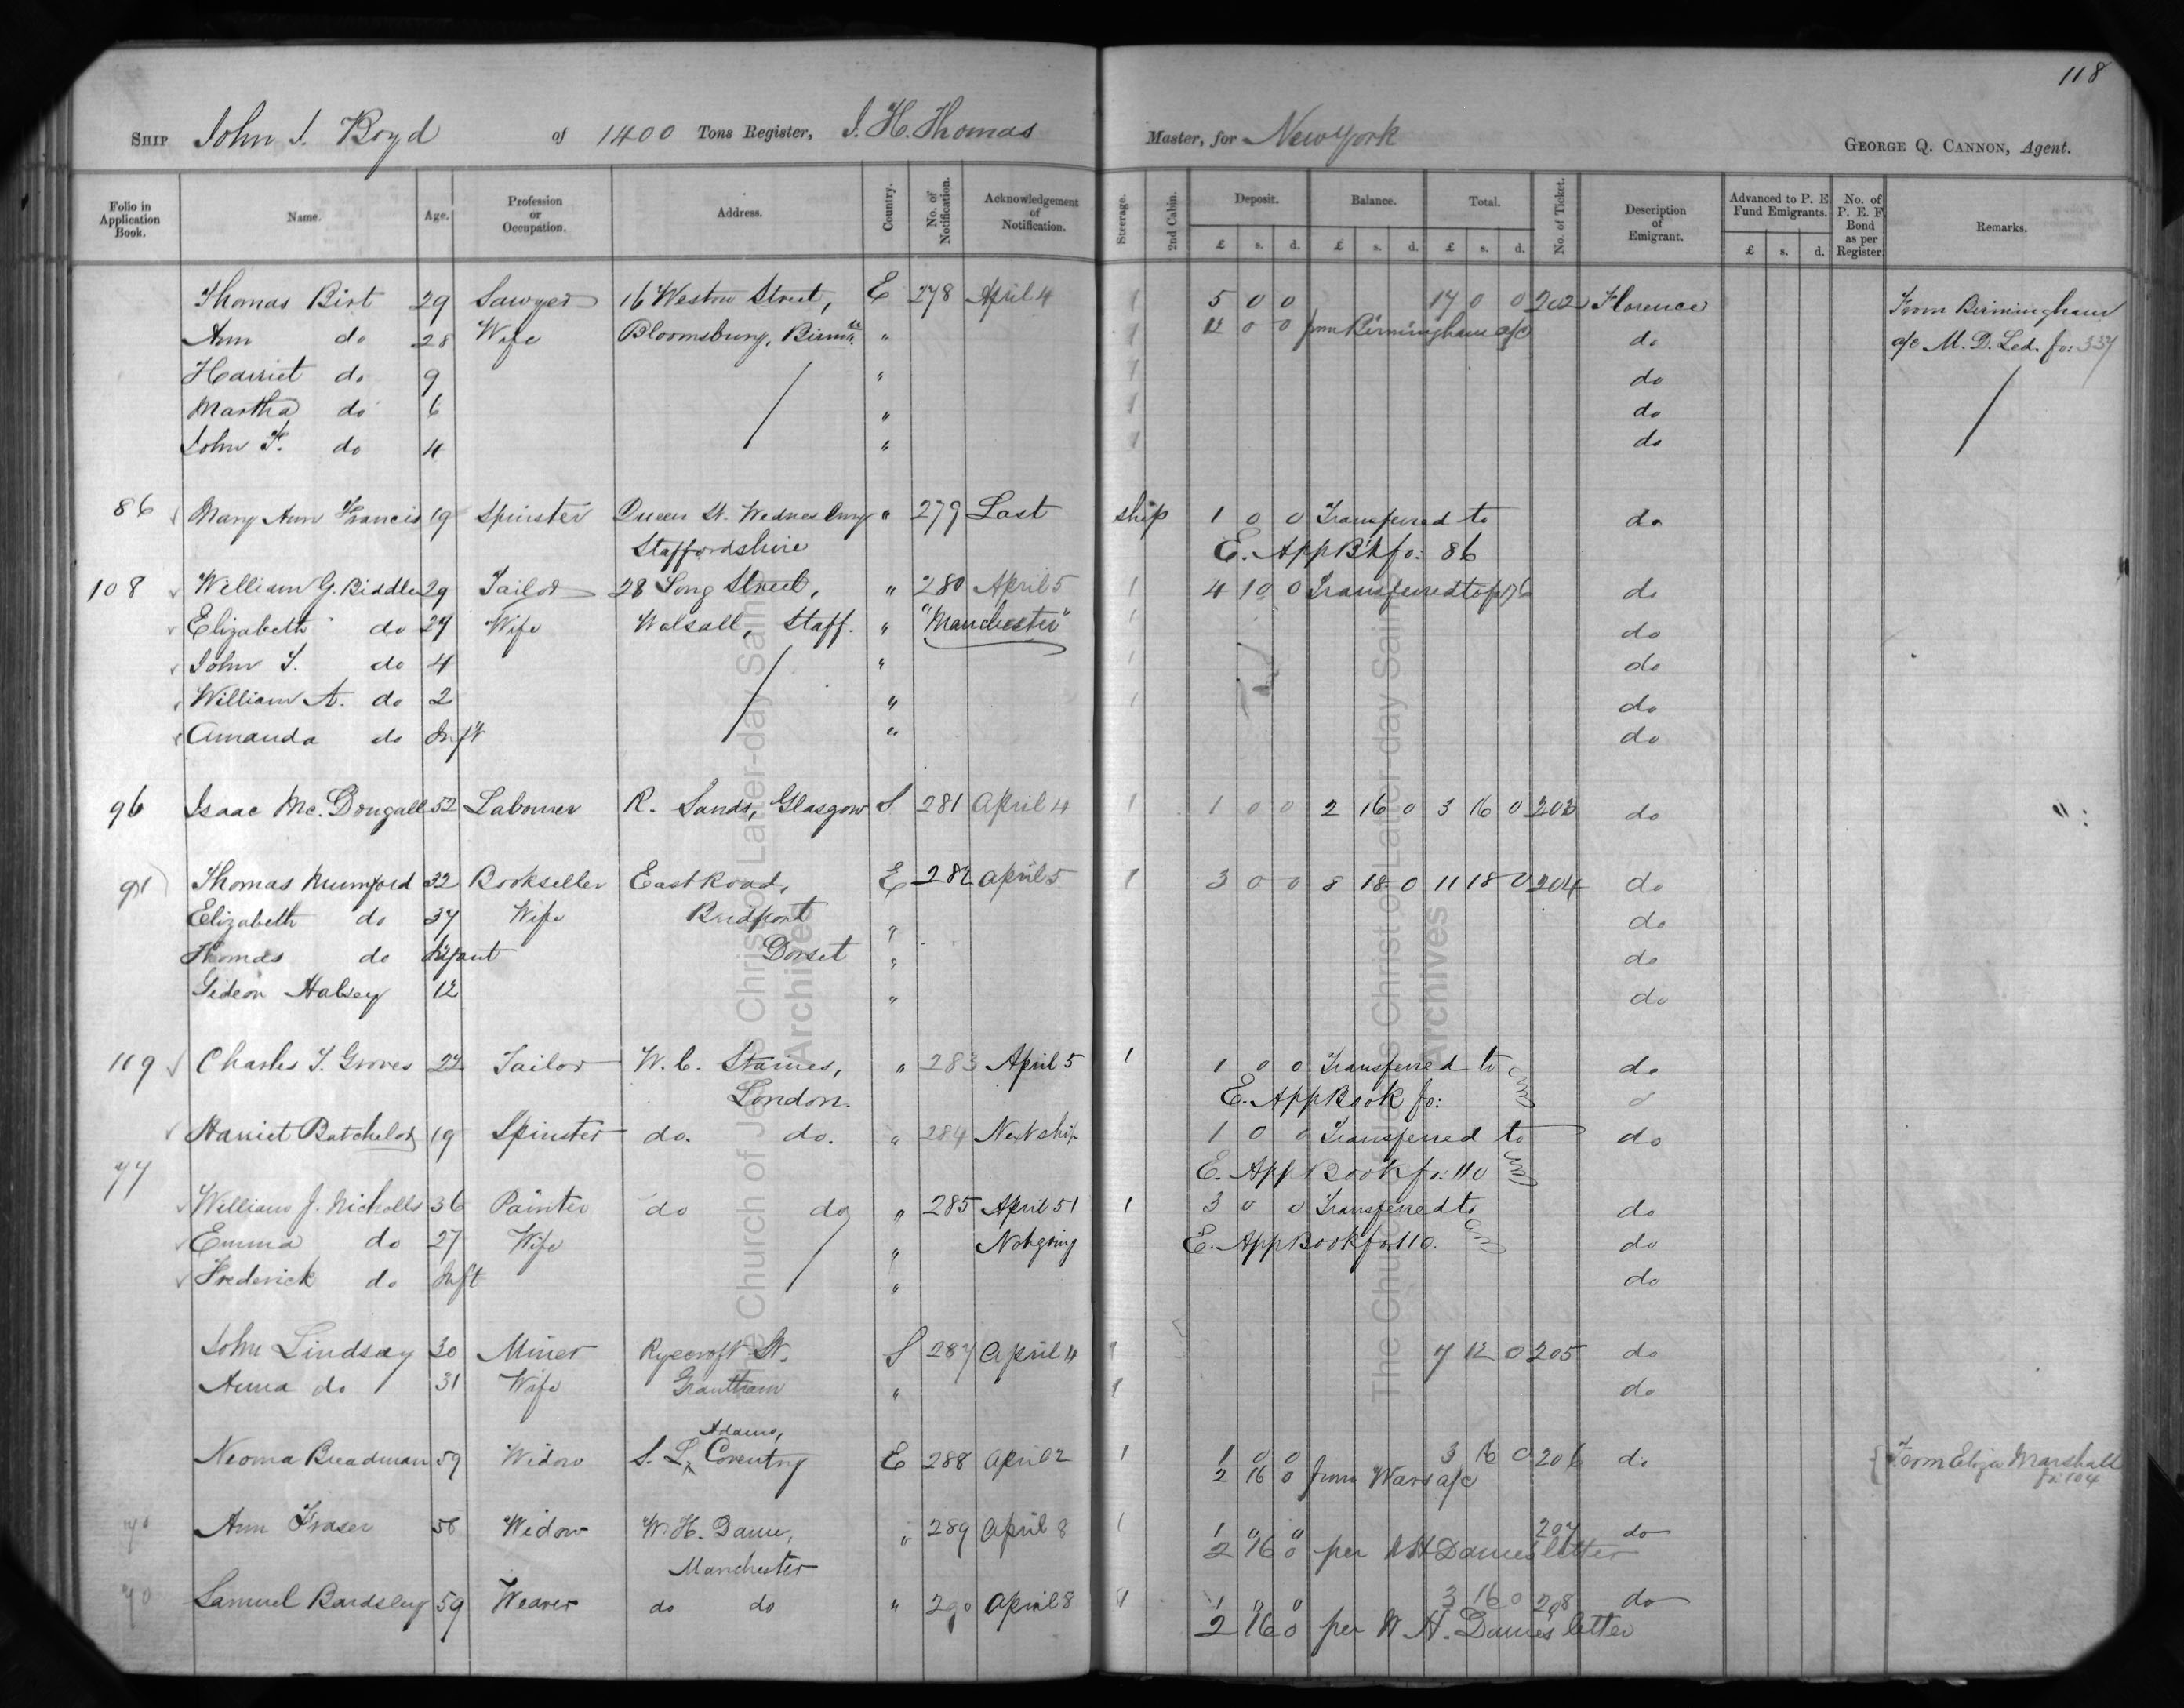 118
SHIP John J. Boyd of 1400 Tons Register, J. H. Thomas Master, for New York GEORGE Q. CANNON, Agent.
Folio in Application Book. Name. Age. Profession or Occupation. Address. Country. No. of Notification. Acknowledgement of Notification. Steerage. 2nd Cabin. Deposit. Balance. Total. No. of Ticket. Description of Emigrant. Advanced to P. E. Fund Emigrants. No. of P. E. F. Bond as per Register. Remarks.
£ s. d. £ s. d. £ s. d. £ s. d.
Thomas Birt 29 Sawyer 16 Weston Street, E 278 April 4 1 5 0 0 17 0 0 202 Florence From Birmingham
Ann do 28 Wife Bloomsbury, Birm. " 1 12 0 0 from Birmingham a/c do a/c M. D. Led. fo: 337
Harriet do 9 " 1 do
Martha do 6 " 1 do
John F. do 4 " 1 do
86 Mary Ann Francis 19 Spinster Queen St. Wednesbury " 279 Last ship 1 0 0 Transferred to do
Staffordshire E. App Bk fo: 86
108 William G. Biddle 29 Tailor 28 Long Street, " 280 April 5 1 4 10 0 Transferred to do
Elizabeth do 27 Wife Walsall, Staff. " "Manchester" 1 do
John T. do 4 " 1 do
William A. do 2 " 1 do
Amanda do Inft " do
96 Isaac Mc. Dougall 52 Labourer R. Sands, Glasgow S 281 April 4 1 1 0 0 2 16 0 3 16 0 203 do
91 Thomas Mumford 32 Bookseller East Road, E 282 April 5 1 3 0 0 8 18 0 11 18 0 204 do
Elizabeth do 37 Wife Bridport " do
Thomas do Infant Dorset " do
Gideon Halsey 12 " do
119 Charles J. Groves 22 Tailor W. C. Staines, " 283 April 5 1 1 0 0 Transferred to do
London. E. App Book fo:
Harriet Batchelor 19 Spinster do. do. " 284 Next ship 1 0 0 Transferred to do
77 E. App Book fo: 110
William J. Nicholls 36 Painter do do " 285 April 5 1 3 0 0 Transferred to do
Emma do 27 Wife " Not going E. App Book fo: 110. do
Frederick do Inft " do
John Lindsay 30 Miner Ryecroft St. S 287 April 4 1 7 12 0 205 do
Anna do 31 Wife Grantham " 1 do
Adams,
Neoma Breadman 59 Widow S. L. Coventry E 288 April 2 1 1 0 0 3 16 0 206 do From Eliza Marshall
2 16 0 from Wars a/c fo 104
70 Ann Fraser 58 Widow W. H. Dame, " 289 April 8 1 1 " " 207 do
2 16 0 per W H Dames letter
Manchester
70 Samuel Bardsley 59 Weaver do do " 290 April 8 1 1 " " 3 16 0 208 do
2 16 0 per W. H. Dame's letter
The Church of Jesus Christ of Latter-day Saints
Archives
The Church of Jesus Christ of Latter-day Saints
Archives